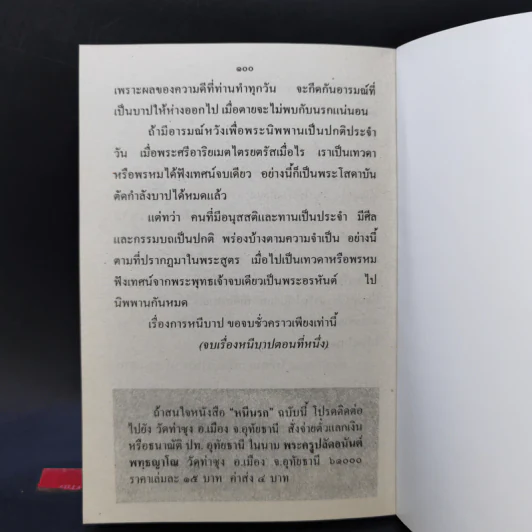 ๑๐๐
เพราะผลของความดีที่ท่านทำทุกวัน จะกีดกันอารมณ์ที่
เป็นบาปให้ห่างออกไป เมื่อตายจะไม่พบกับนรกแน่นอน
ถ้ามีอารมณ์หวังเพื่อพระนิพพานเป็นปกติประจำ
วัน เมื่อพระศรีอาริยเมตไตรยตรัสเมื่อไร เราเป็นเทวดา
หรือพรหมได้ฟังเทศน์จบเดียว อย่างนี้ก็เป็นพระโสดาบัน
ตัดกำลังบาปได้หมดแล้ว
แต่ทว่า คนที่มีอนุสสติและทานเป็นประจำ มีศีล
และกรรมบถเป็นปกติ พร่องบ้างตามความจำเป็น อย่างนี้
ตามที่ปรากฏมาในพระสูตร เมื่อไปเป็นเทวดาหรือพรหม
ฟังเทศน์จากพระพุทธเจ้าจบเดียวเป็นพระอรหันต์ ไป
นิพพานกันหมด
เรื่องการหนีบาป ขอจบชั่วคราวเพียงเท่านี้
(จบเรื่องหนีบาปตอนที่หนึ่ง)
ถ้าสนใจหนังสือ "หนีนรก" ฉบับนี้ โปรดติดต่อ
ไปยัง วัดท่าซุง อ.เมือง จ.อุทัยธานี สั่งจ่ายตั๋วแลกเงิน
หรือธนาณัติ ปท. อุทัยธานี ในนาม พระครูปลัดอนันต์
พทฺธญาโณ วัดท่าซุง อ.เมือง จ.อุทัยธานี ๖๑๐๐๐
ราคาเล่มละ ๑๕ บาท ค่าส่ง ๔ บาท